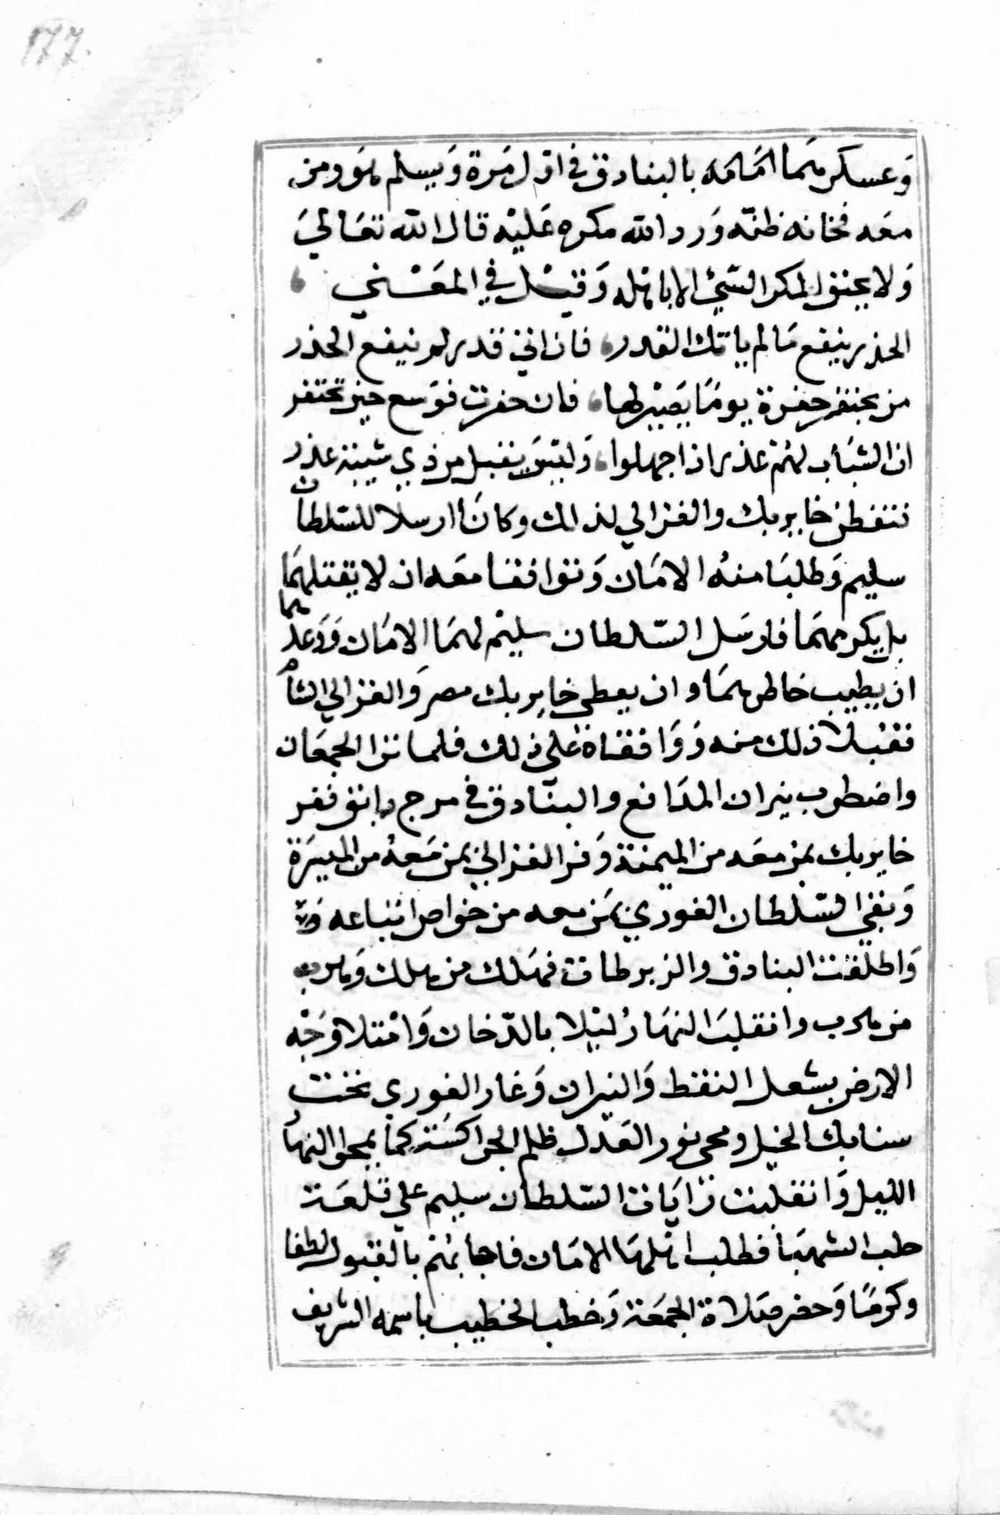 ١٧٧
وعسكرهما الحامه بالبنادق في اول مرة ويسلم هو ومن
معه فخانه ظنه ورد الله مكره عليه قال الله تعالى
ولا يحيق المكر السيئ الا باهله وقيل في المعنى
الحذر ينفع مالم ياتك القدر فان اتى قدر لم ينفع الحذر
من يحتفر حفرة يوما يصير لها فان حفرت فوسع حين تحتفر
ان الشباب لهم عذر اذا جهلوا وليس يقبل من ذي شيبة عذر
فتفطن خاير بك والغزالي لذلك وكانا ارسلا للسلطان
سليم وطلبا منه الامان وتوافقا معه ان لا يقتلهما
بل يكرمهما فارسل السلطان سليم لهما الامان ووعدهما
ان يطيب خاطرهما وان يعطى خاير بك مصر والغزالي الشام
فقبلا ذلك منه ووافقاه على ذلك فلما تزا الجمعان
واضطرب نيران المدافع والبنادق في مرج دابق ففر
خاير بك بمن معه من الميمنة وفر الغزالي بمن معه من الميسرة
وبقي السلطان الغوري بمن معه من خواص اتباعه
واطلقت البنادق والزبرطانات فهلك من هلك وهرب
من هرب وانقلب النهار ليلا بالدخان وامتلا وجه
الارض بشعل النفط والنيران وغار الغوري تحت
سنابك الخيل ومحى نور العدل ظلم الجراكسة كما يمحوا النهار
الليل وانقلبت رايات السلطان سليم على قلعة
حلب الشهبا فطلب اهلها الامان فاجابهم بالقبول لطفا
وكرما وحضر صلاة الجمعة وخطب الخطيب باسمه الشريف